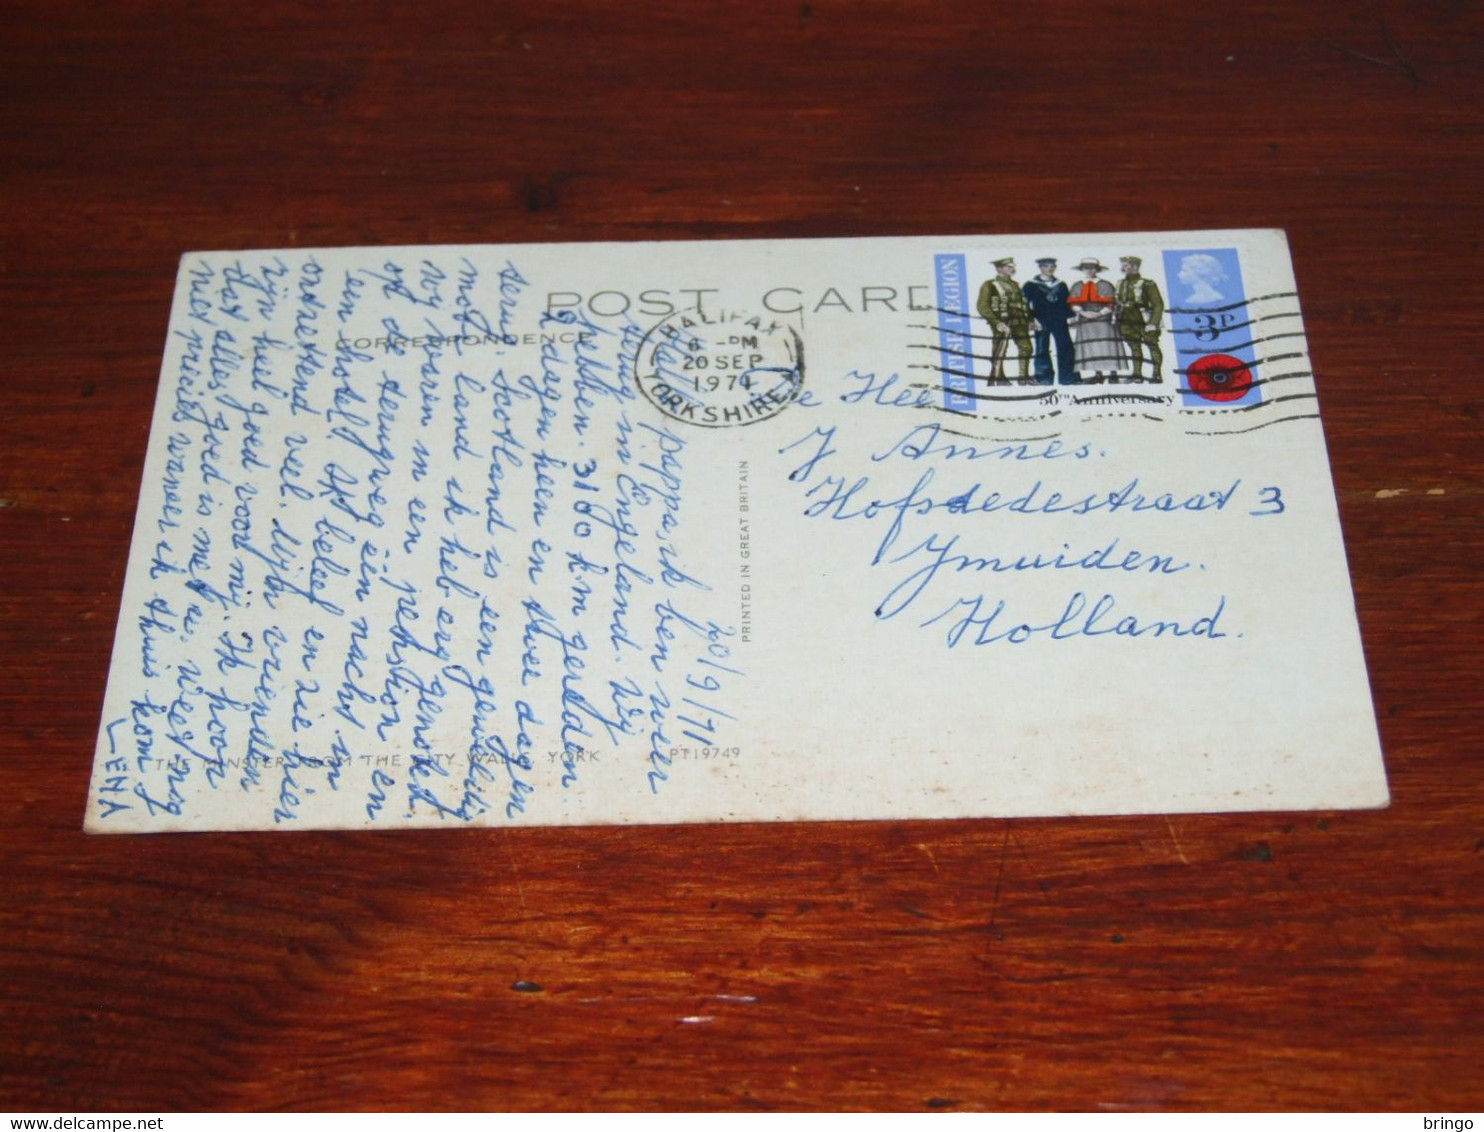 POST CARD
CORRESPONDENCE
HALIFAX
6 - PM
20 SEP
1971
YORKSHIRE
BRITISH LEGION
3P
50TH Anniversary
De Heer
J Annes.
Hofstedestraat 3
Ymuiden.
Holland.
20/9/71
Hallo pappa, ik ben weer
terug in Engeland. Wij
hebben 3160 k.m gereden
2 dagen heen en twee dagen
terug. Schotland is een geweldig
mooi land ik heb erg genoten.
wij waren in een pension en
op de terugweg één nacht in
een hotel. Ik beleef en zie hier
ontzettend veel. Mijn vrienden
zijn heel goed voor mij. Ik hoor
dat alles goed is met u. Weet nog
niet precies wanneer ik thuis kom.
LENA
THE MINSTER FROM THE CITY WALLS, YORK
PT19749
PRINTED IN GREAT BRITAIN
bringo